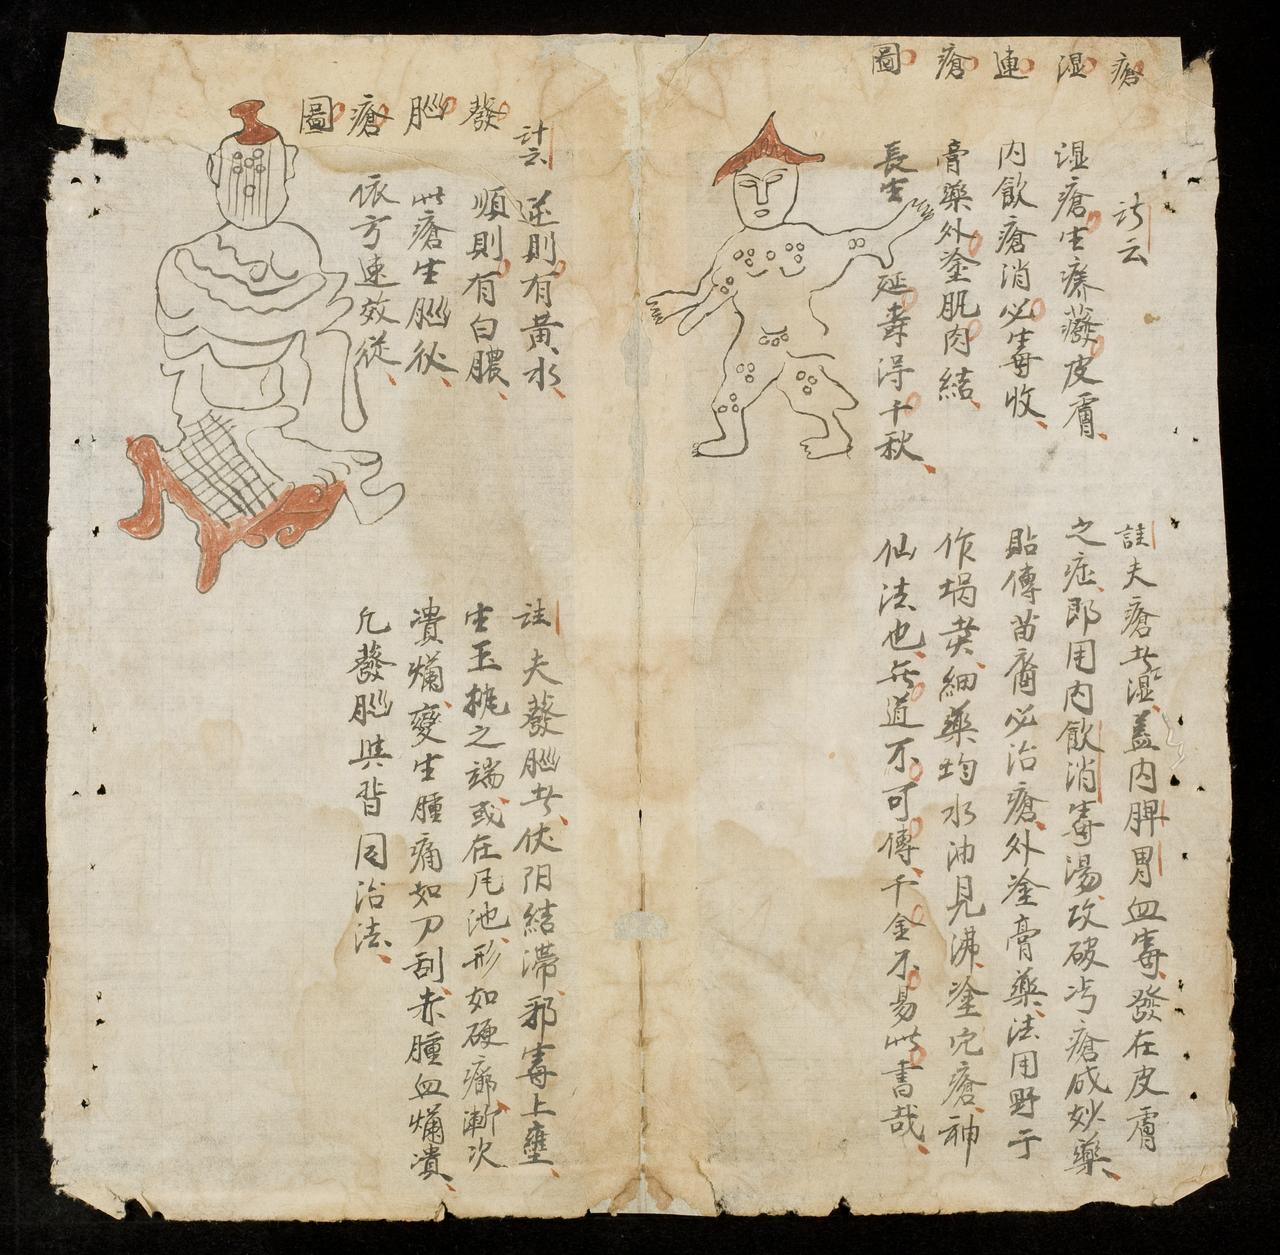 瘡湿連瘡圖
詩云
湿瘡生癢發皮膚
内飲瘡消必毒收
膏藥外塗肌肉結
長生延壽得千秋
註夫瘡者湿蓋内脾胃血毒發在皮膚
之症即用内飲消毒湯攻破瘡成妙藥
貼傳苗裔必治瘡外塗膏藥法用野于
作埚煲細藥均水油見沸塗完瘡神
仙法也無道不可傳千金不易此書哉
發腦瘡圖
詩云
逆則有黃水
順則有白膿
此瘡生腦後
依方速效從
註夫發腦者伏阳結滞邪毒上壅
生玉桃之端或在凡池形如硬癤漸次
潰爛變生腫痛如刀刮赤腫血爛潰
凡發腦與背同治法